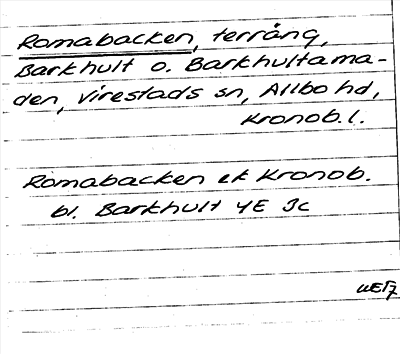 Romabacken, terräng,
Barkhult o. Barkhultama-
den, Virestads sn, Allbo hd,
Kronob. l.
Romabacken ek Kronob.
bl. Barkhult 4E 3c